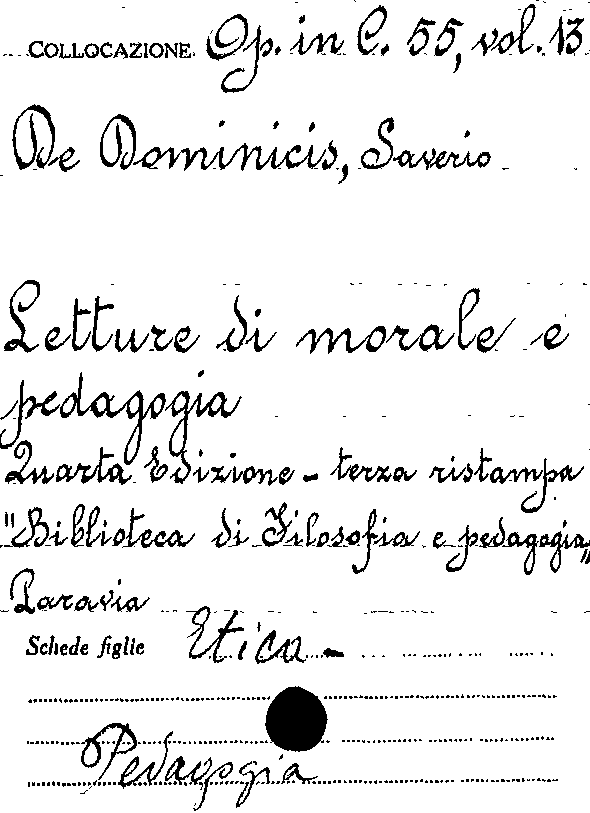 COLLOCAZIONE Op. in C. 55, vol. 13
De Dominicis, Saverio
Letture di morale e
pedagogia
Quarta Edizione - terza ristampa
"Biblioteca di Filosofia e pedagogia„
Paravia
Schede figlie Etica -
Pedagogia